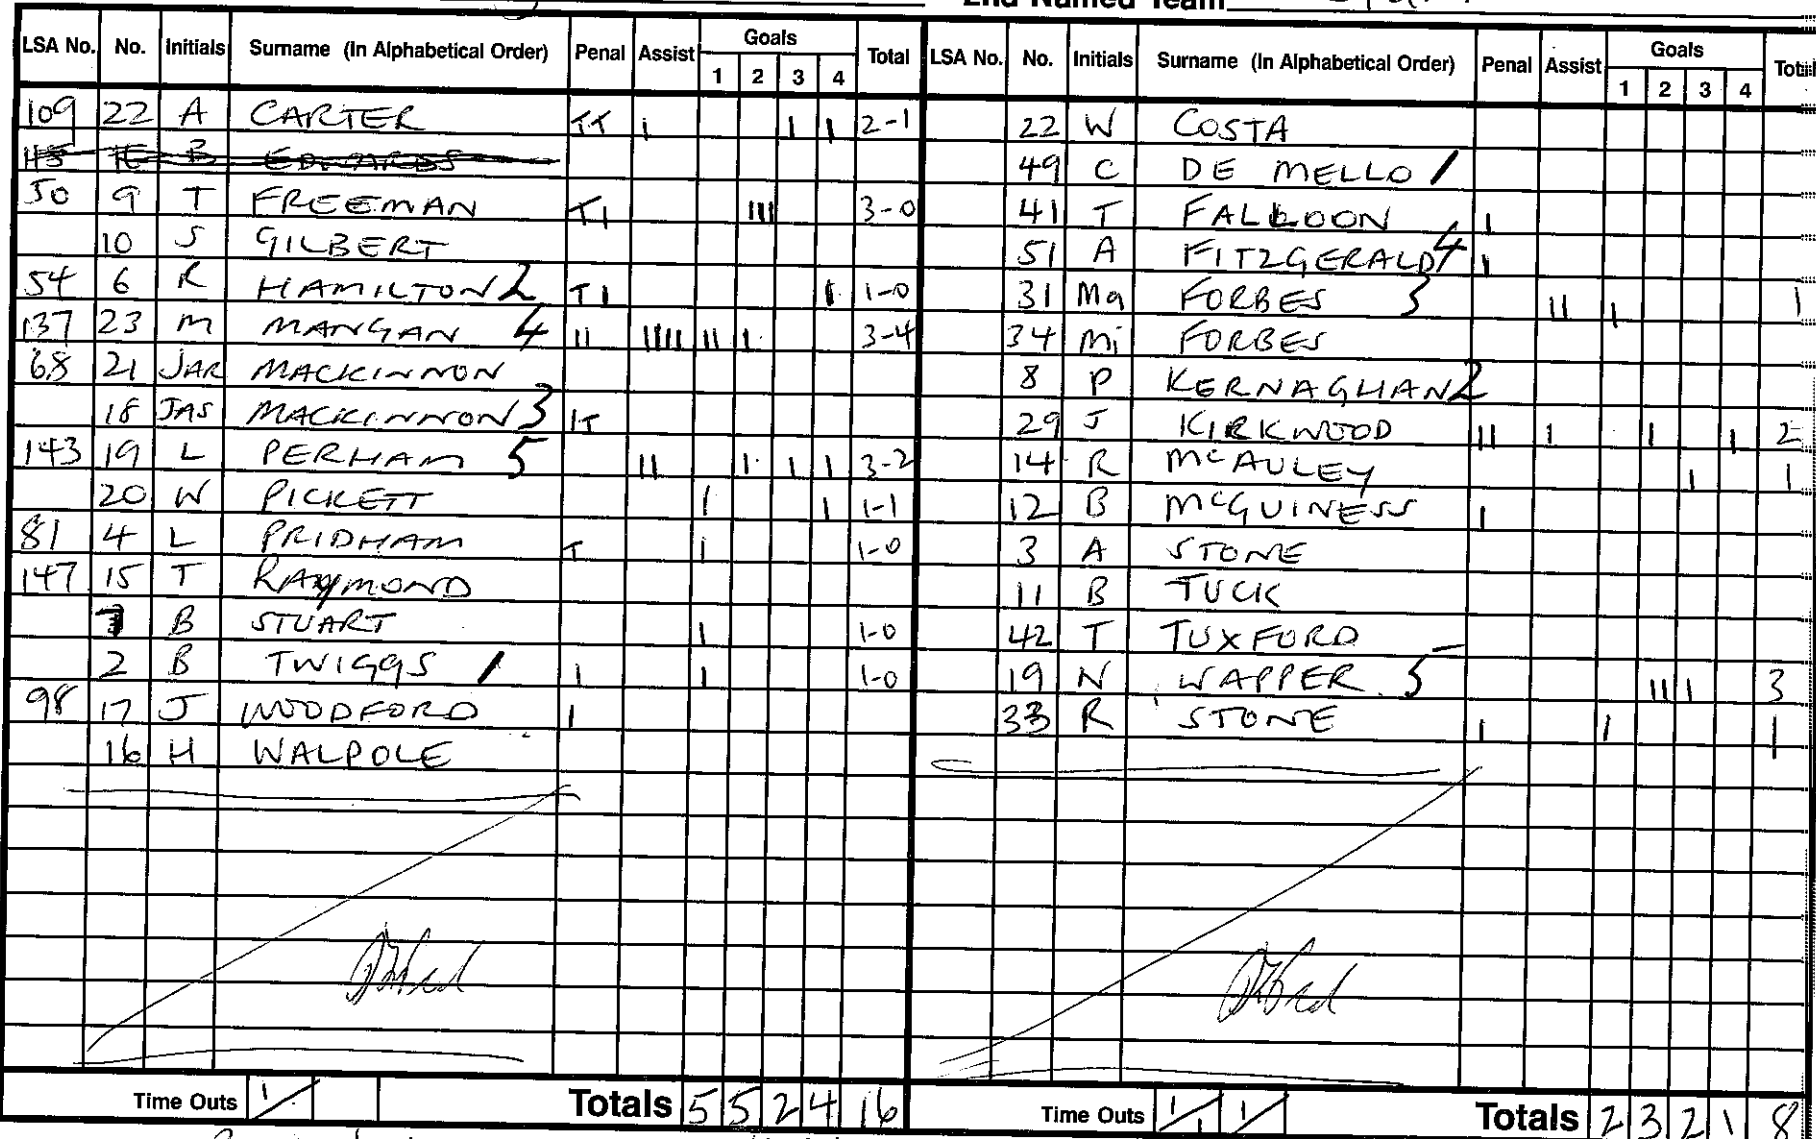 2nd Named Team
LSA No. No. Initials Surname (In Alphabetical Order) Penal Assist Goals 1 2 3 4 Total
109 22 A CARTER TT I I I 2-1
EDWARDS
50 9 T FREEMAN TI III 3-0
10 S GILBERT
54 6 R HAMILTON 2 TI I 1-0
137 23 M MANGAN 4 II IIII II I 3-4
68 21 JAR MACKINNON
18 JAS MACKINNON 3 IT
143 19 L PERHAM 5 II I I I 3-2
20 W PICKETT I I 1-1
81 4 L PRIDHAM T I 1-0
147 15 T RAYMOND
B STUART I 1-0
2 B TWIGGS 1 I I 1-0
98 17 J WOODFORD I
16 H WALPOLE
Time Outs 1 Totals 5 5 2 4 16
LSA No. No. Initials Surname (In Alphabetical Order) Penal Assist Goals 1 2 3 4 Total
22 W COSTA
49 C DE MELLO 1
41 T FALLOON I
51 A FITZGERALD 4 I
31 Ma FORBES 3 II I 1
34 Mi FORBES
8 P KERNAGHAN 2
29 J KIRKWOOD II I I I 2
14 R McAULEY I 1
12 B McGUINESS I
3 A STONE
11 B TUCK
42 T TUXFORD
19 N WAPPER 5 II I 3
33 R STONE I I 1
Time Outs 1 1 Totals 2 3 2 1 8